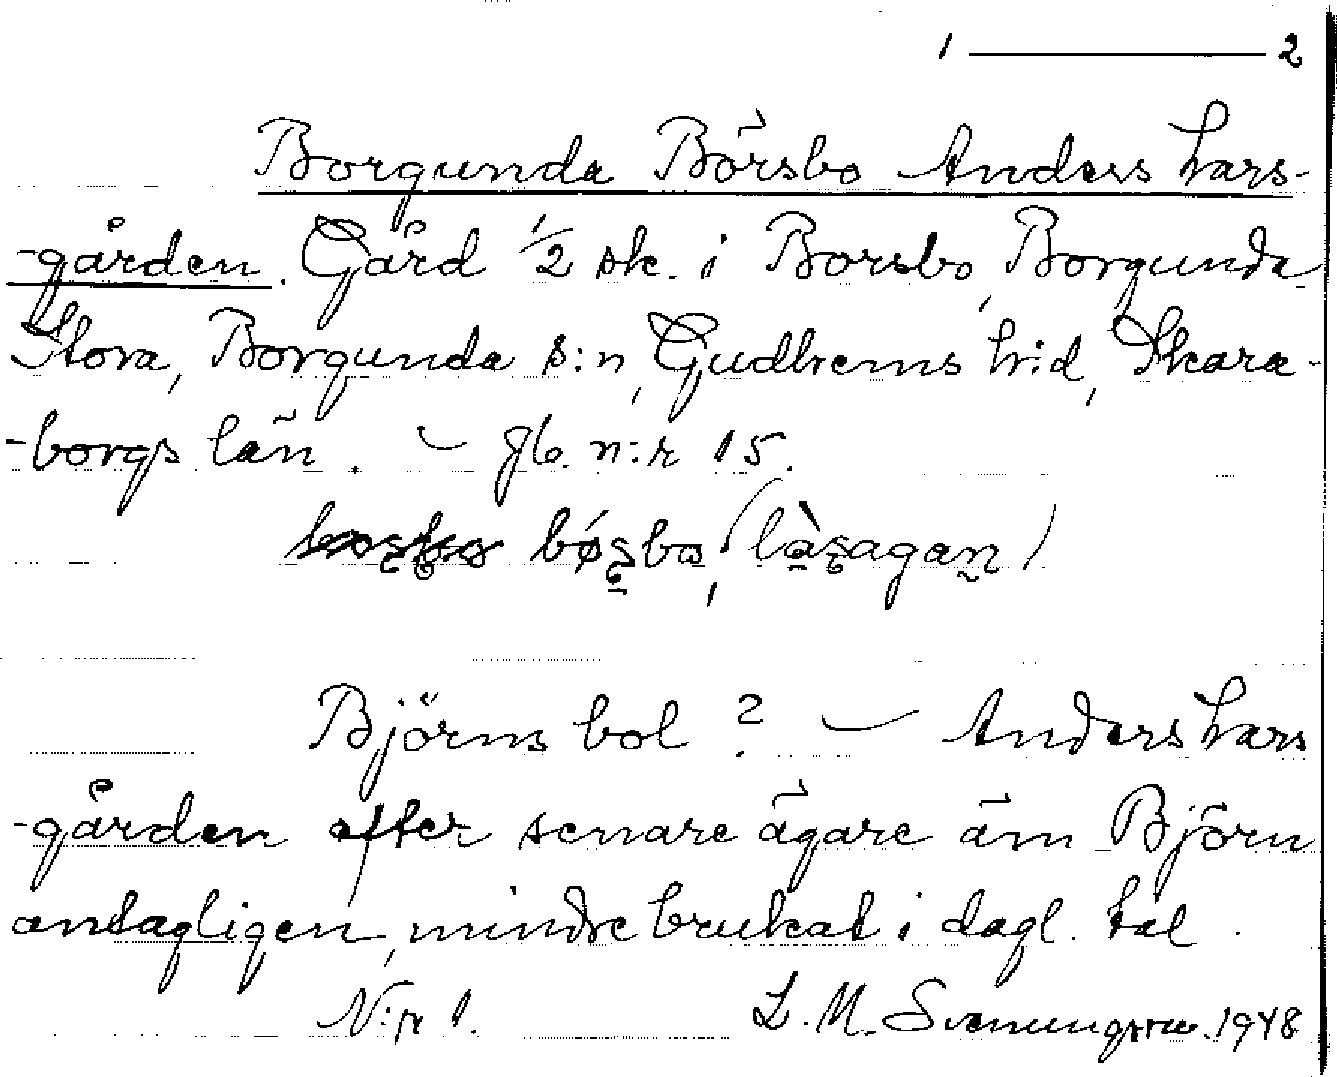 1 ——— 2
Borgunda Börsbo Anders Lars-
-gården. Gård 1/2 sk. i Borsbo, Borgunda
Stora, Borgunda s:n, Gudhems h:d, Skara-
-borgs län. – jb. n:r 15.
bǿʂbo, (làʂagaɳ)
Björns bol? – Anders Lars
-gården efter senare ägare än Björn
antagligen, mindre brukat i dagl. tal.
N:r 1. L. M. Svenungsson. 1948